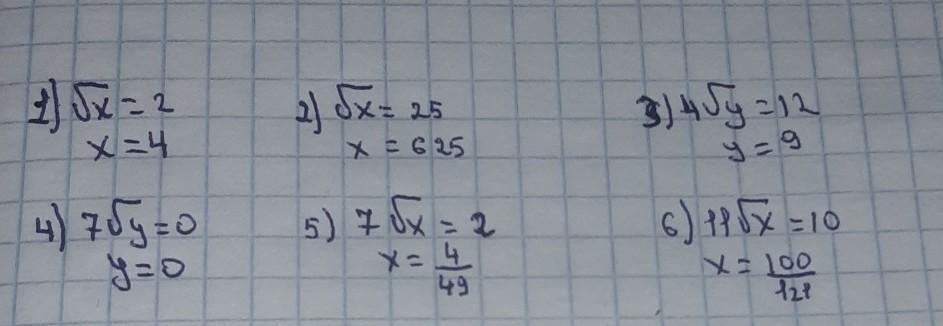 1) √x = 2
x = 4
2) √x = 25
x = 625
3) 4√y = 12
y = 9
4) 7√y = 0
y = 0
5) 7√x = 2
x = 4/49
6) 11√x = 10
x = 100/121